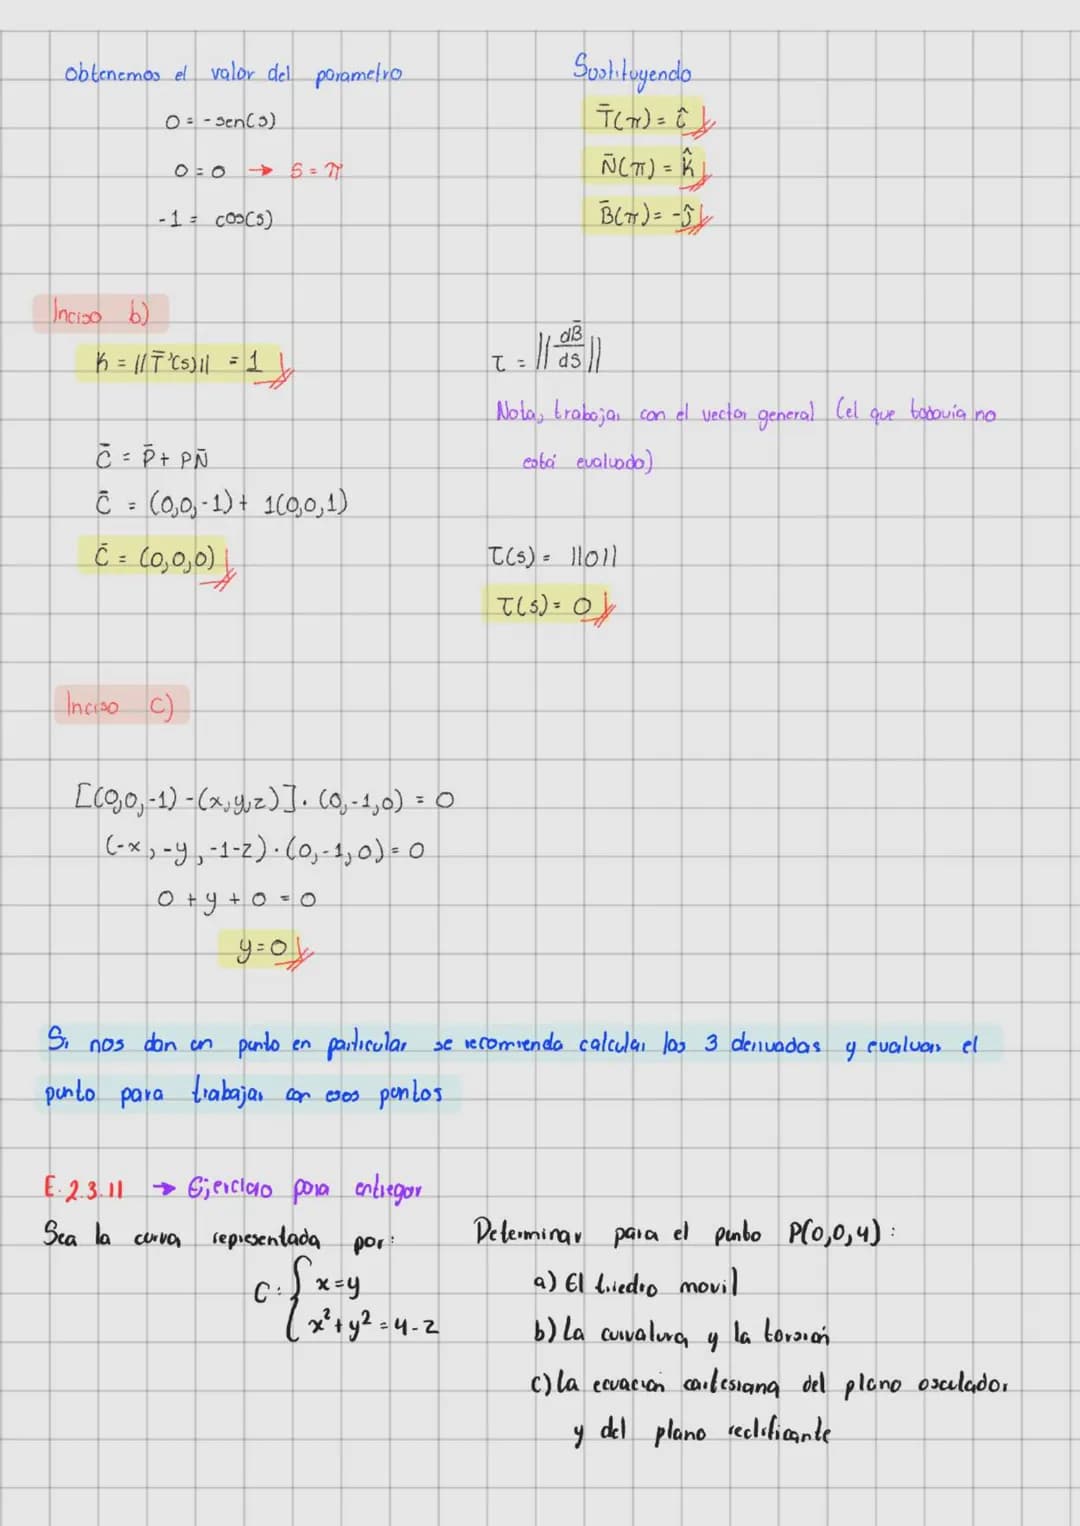 Obtenemos el valor del parametro
0 = -sen(s)
0 = 0 → s = π
-1 = cos(s)
Sustituyendo
T̄(π) = î
N̄(π) = k̂
B̄(π) = -ĵ
Inciso b)
K = ||T̄'(s)|| = 1
C̄ = P̄ + ρN̄
C̄ = (0,0,-1) + 1(0,0,1)
C̄ = (0,0,0)
τ = ||dB̄/ds||
Nota, trabajar con el vector general (el que todavia no
está evaluado)
τ(s) = ||0||
τ(s) = 0
Inciso c)
[(0,0,-1) - (x,y,z)] · (0,-1,0) = 0
(-x, -y, -1-z) · (0,-1,0) = 0
0 + y + 0 = 0
y = 0
Si nos dan un punto en particular se recomienda calcular las 3 derivadas y evaluar el
punto para trabajar con esos puntos
E.2.3.11 → Ejercicio para entregar
Sea la curva representada por:
C: { x = y
x² + y² = 4 - z
Determinar para el punto P(0,0,4):
a) El triedro movil
b) La curvatura y la torsión
c) La ecuación cartesiana del plano osculador
y del plano rectificante